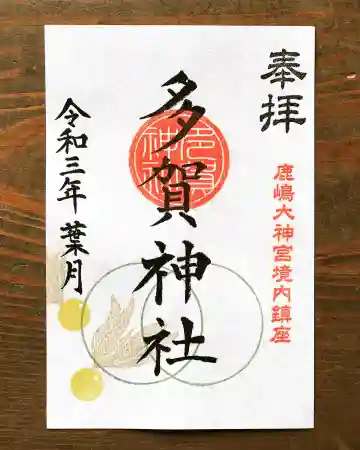 奉拝
鹿嶋大神宮境内鎮座
多賀神社
令和三年葉月